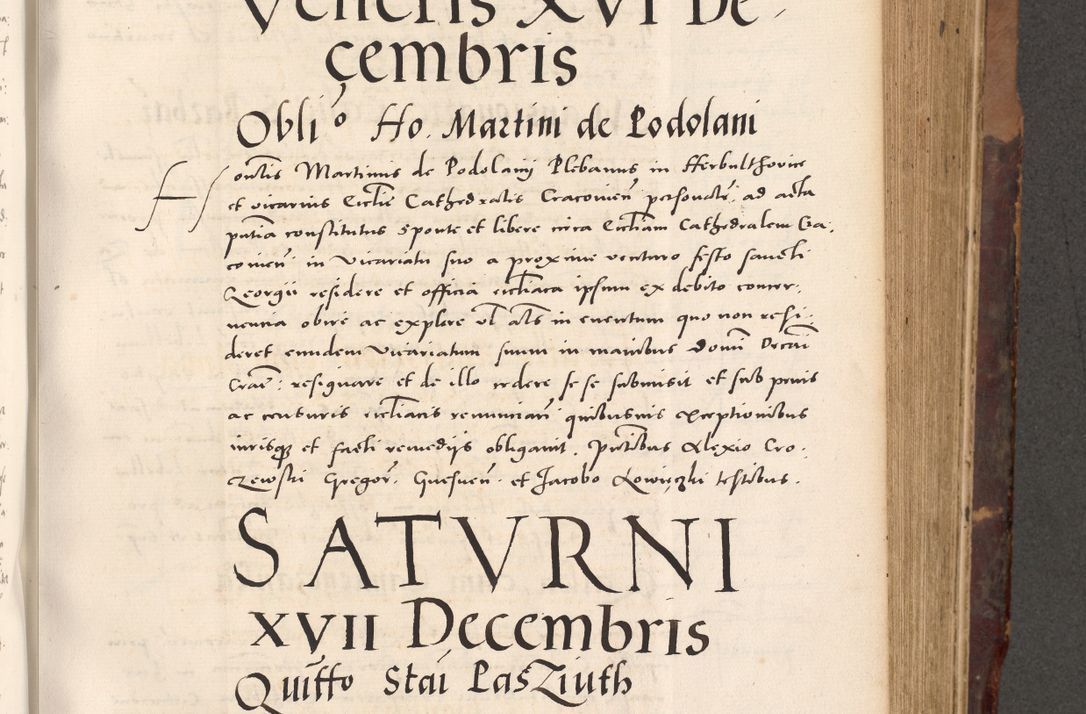 Veneris XVI De
çembris
Obli⁰ Ho. Martini de Podolani
Honn̄lis Martinus de Podolanij Plebanus in
et vicarius Ecclīe Cathedralis Cracovien̄ personalr̄ ad acta
pn̄tia constitutus sponte et libere circa Eccl̄iam Cathedralem Cra,
covien̄ in Vicariatu suo a proxime venturo festo sancti
Georgii residere et officia eccl̄iaca ipsum ex debito concer,
nencia obire ac explere vl̄ al̄s in eventum quo non resi,
deret eundem Vicariatum suum in manibus Domī Decāi
Crac̄: resignare et de illo cedere se se submisit et sub penis
ac censuris eccl̄iacis renuncian̄ quibusuis exceptionibus
iurisqꝫ et facti remedijs obligavit. Pn̄tibus Alexio Cro,
czewski Gregor̄. Gnesnen̄. et Jacobo Lowiczki testibus.
SATVRNI
XVII Decembris
Quitt⁰ Stāi Lasziuth